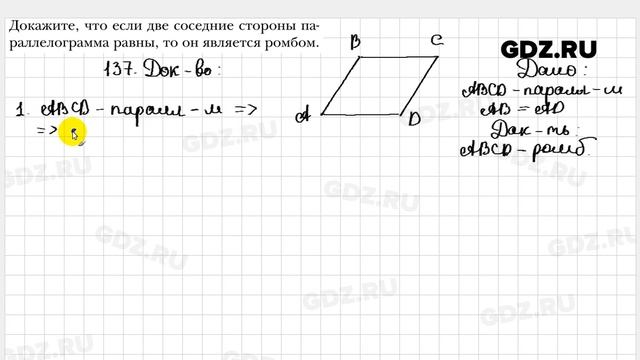 Докажите, что если две соседние стороны па-
раллелограмма равны, то он является ромбом.
137. Док-во:
1. ABCD - паралл-м =>
=>
B C
A D
GDZ.RU
Дано:
ABCD - паралл-м
AB = AD
Док-ть:
ABCD - ромб.
GDZ.RU
GDZ.RU
GDZ.RU
GDZ.RU
GDZ.RU
GDZ.RU
GDZ.RU